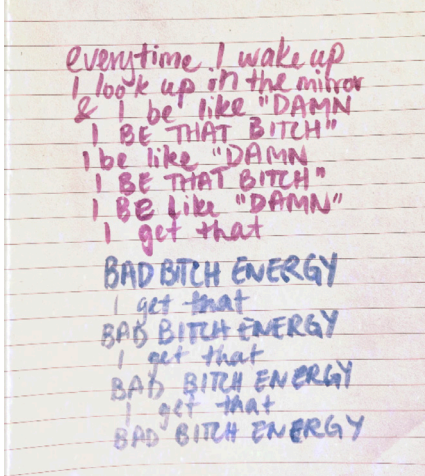 everytime I wake up
I look up in the mirror
& I be like "DAMN
I BE THAT BITCH"
I be like "DAMN
I BE THAT BITCH"
I BE like "DAMN"
I get that
BAD BITCH ENERGY
I get that
BAD BITCH ENERGY
I get that
BAD BITCH ENERGY
I get that
BAD BITCH ENERGY